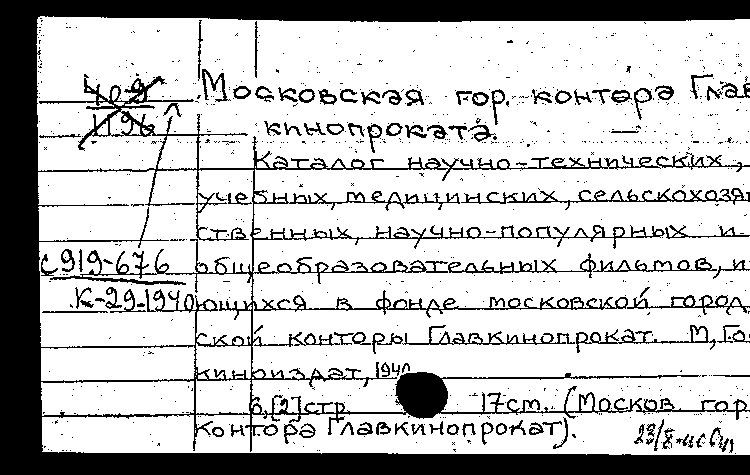 409
1196
Московская гор. контора Глав
кинопроката.
Каталог научно-технических,
учебных, медицинских, сельскохозя
ственных, научно-популярных и
С919-676
общеобразовательных фильмов, и
К-29-1940
ющихся в фонде московской город
ской конторы Главкинопрокат. М, Го
киноиздат, 1940
6,[2]стр 17см. (Москов. гор
контора Главкинопрокат).